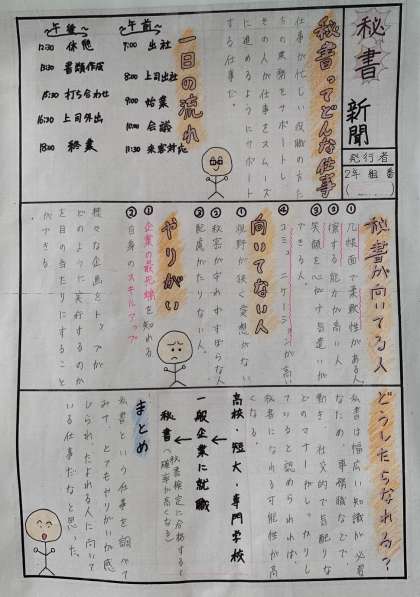 秘書新聞
発行者
2年 組 番
秘書ってどんな仕事
仕事が忙しい役職の方た
ちの業務をサポートし
その人が仕事をスムーズ
に進めるようにサポート
する仕事だ。
一日の流れ
午前
7:00 出社
8:00 上司出社
9:00 始業
10:00 会議
11:30 来客対応
午後
12:30 休憩
13:30 書類作成
15:30 打ち合わせ
16:30 上司外出
18:00 終業
秘書が向いてる人
① 几帳面で柔軟性がある人
② 察する能力が高い人
③ 笑顔を心がけ気遣いが
できる人
④ コミュニケーションが高い
向いてない人
① 視野が狭く愛想がない
② 秘密が守れずずぼらな人
③ 配慮がたりない人。
やりがい
① 企業の最先端を知れる
② 自身のスキルアップ
様々な企画をトップが
どのように実行するのか
を目の当たりにすること
ができる
どうしたらなれる?
秘書は幅広い知識が必要
なため、事務職などで
働き、社交的で気配りな
どのマナーがしっかりし
ていると認められれば、
秘書になれる可能性が高
くなる。
高校・短大・専門学校
一般企業に就職
秘書
(秘書検定に合格すると
確率が高くなる)
まとめ
秘書という仕事を調べて
みて、とてもやりがいが感
じられたよれる人に向いて
いる仕事だなと思った。